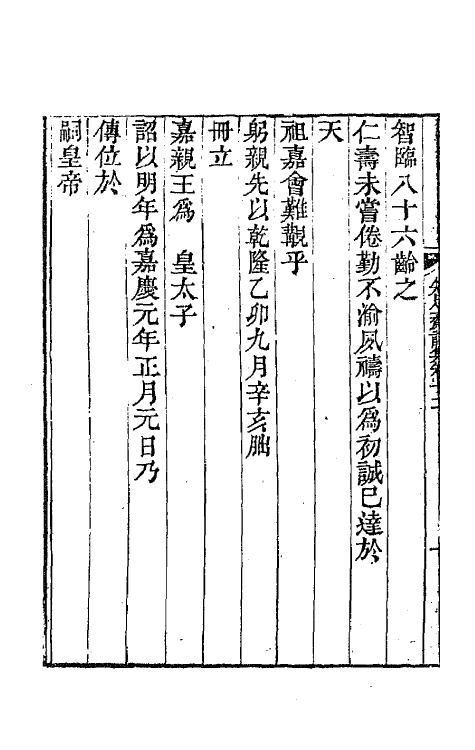 智臨八十六齡之
仁壽未嘗倦勤不渝夙禱以爲初誠已達於
天
祖嘉會難覯乎
躬親先以乾隆乙卯九月辛亥朏
冊立
嘉親王爲　皇太子
詔以明年爲嘉慶元年正月元日乃
傳位於
嗣皇帝